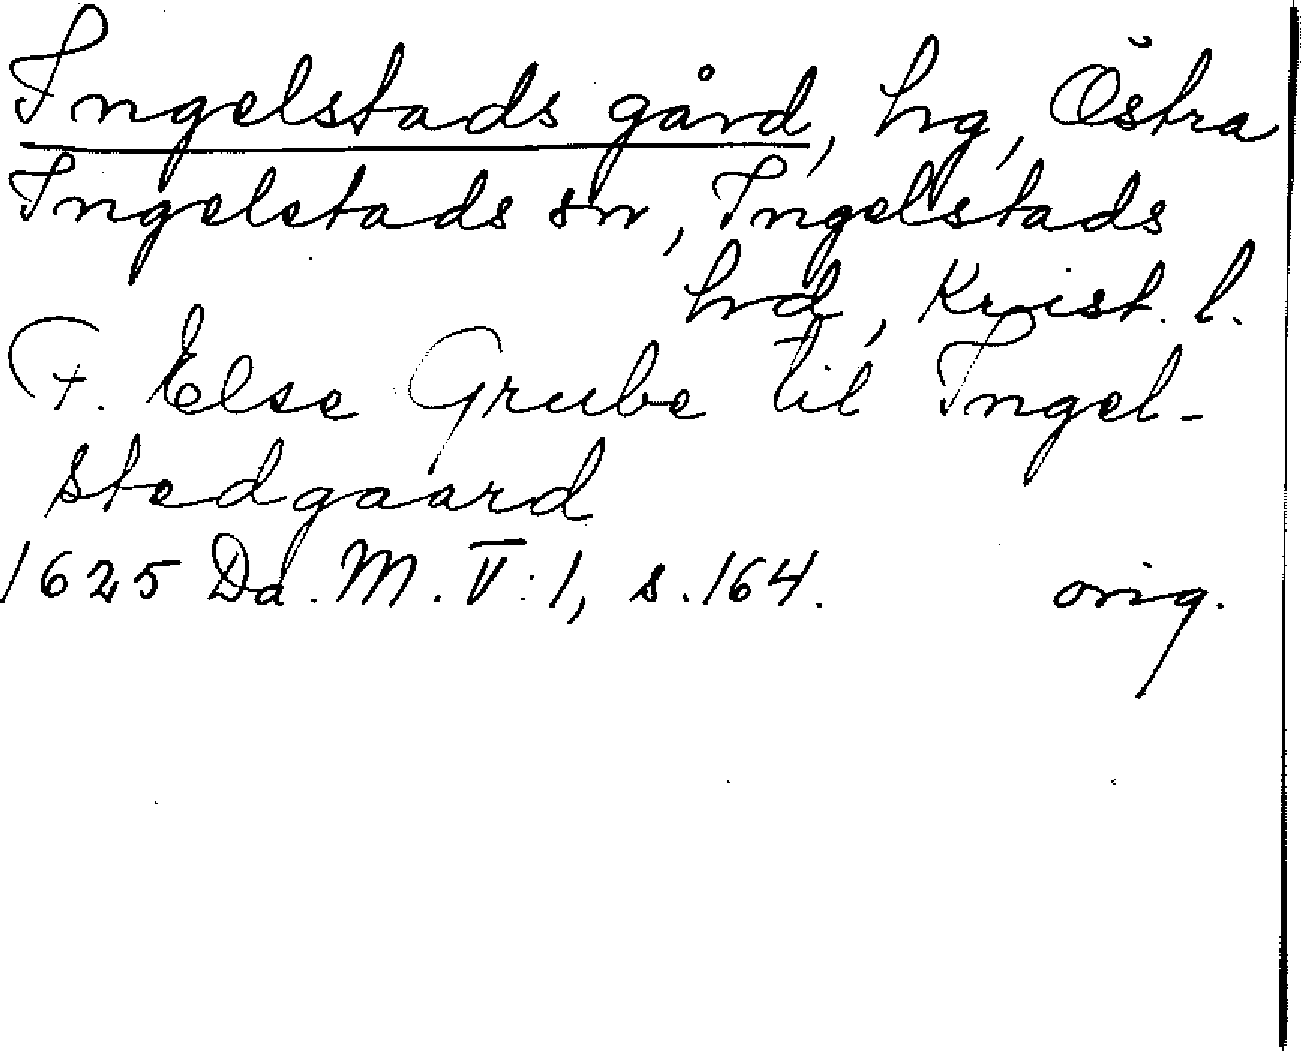 Ingelstads gård, hg, Östra
Ingelstads sn, Ingelstads
hrd, Krist. l.
F. Else Grube til Ingel-
stedgaard
1625 Da. M. V:1, s. 164. orig.